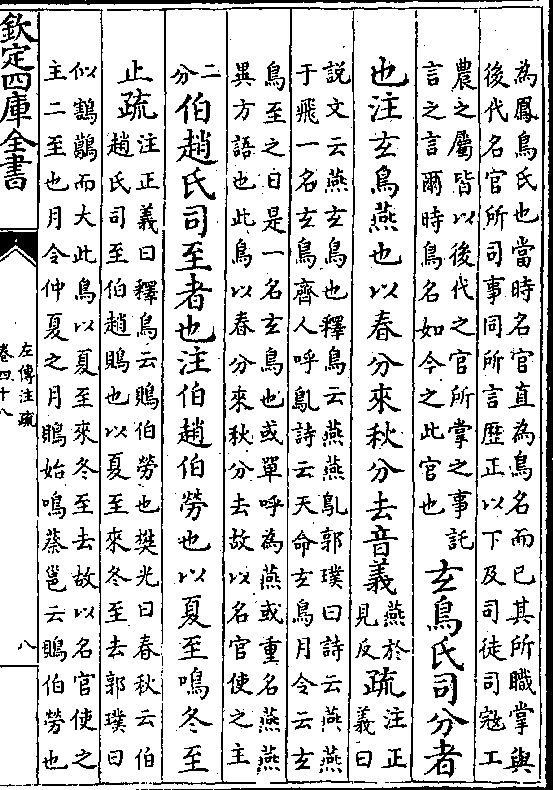 為鳳鳥氏也當時名官直為鳥名而已其所職掌與
後代名官所司事同所言歴正以下及司徒司冦工
農之屬皆以後代之官所掌之事託
言之言爾時鳥名如今之此官也
玄鳥氏司分者
也注玄鳥燕也以春分來秋分去音義
燕於
見反
疏
注正
義曰
説文云燕玄鳥也釋鳥云燕燕鳦郭璞曰詩云燕燕
于飛一名玄鳥齊人呼鳦詩云天命玄鳥月令云玄
鳥至之日是一名玄鳥也或單呼為燕或重名燕燕
異方語也此鳥以春分來秋分去故以名官使之主
二
分
伯趙氏司至者也注伯趙伯勞也以夏至鳴冬至
止疏
注正義曰釋鳥云鵙伯勞也樊光曰春秋云伯
趙氏司至伯趙鵙也以夏至來冬至去郭璞曰
似鶷鶡而大此鳥以夏至來冬至去故以名官使之
主二至也月令仲夏之月鵙始鳴蔡邕云鵙伯勞也
欽定四庫全書
左傳注疏
卷四十八
八